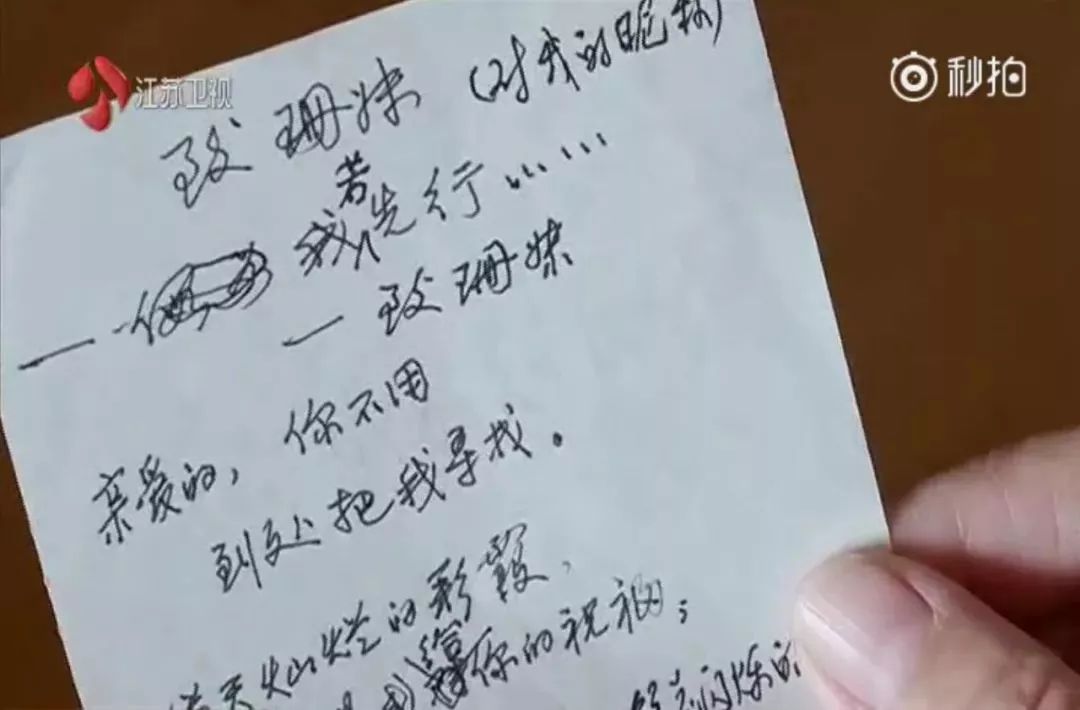 江苏卫视
秒拍
致珊妹(对我的昵称)
我若先行……
—致珊妹
亲爱的,你不用
到处把我寻找。
满天灿烂的彩霞、
给你的祝福;
闪烁的